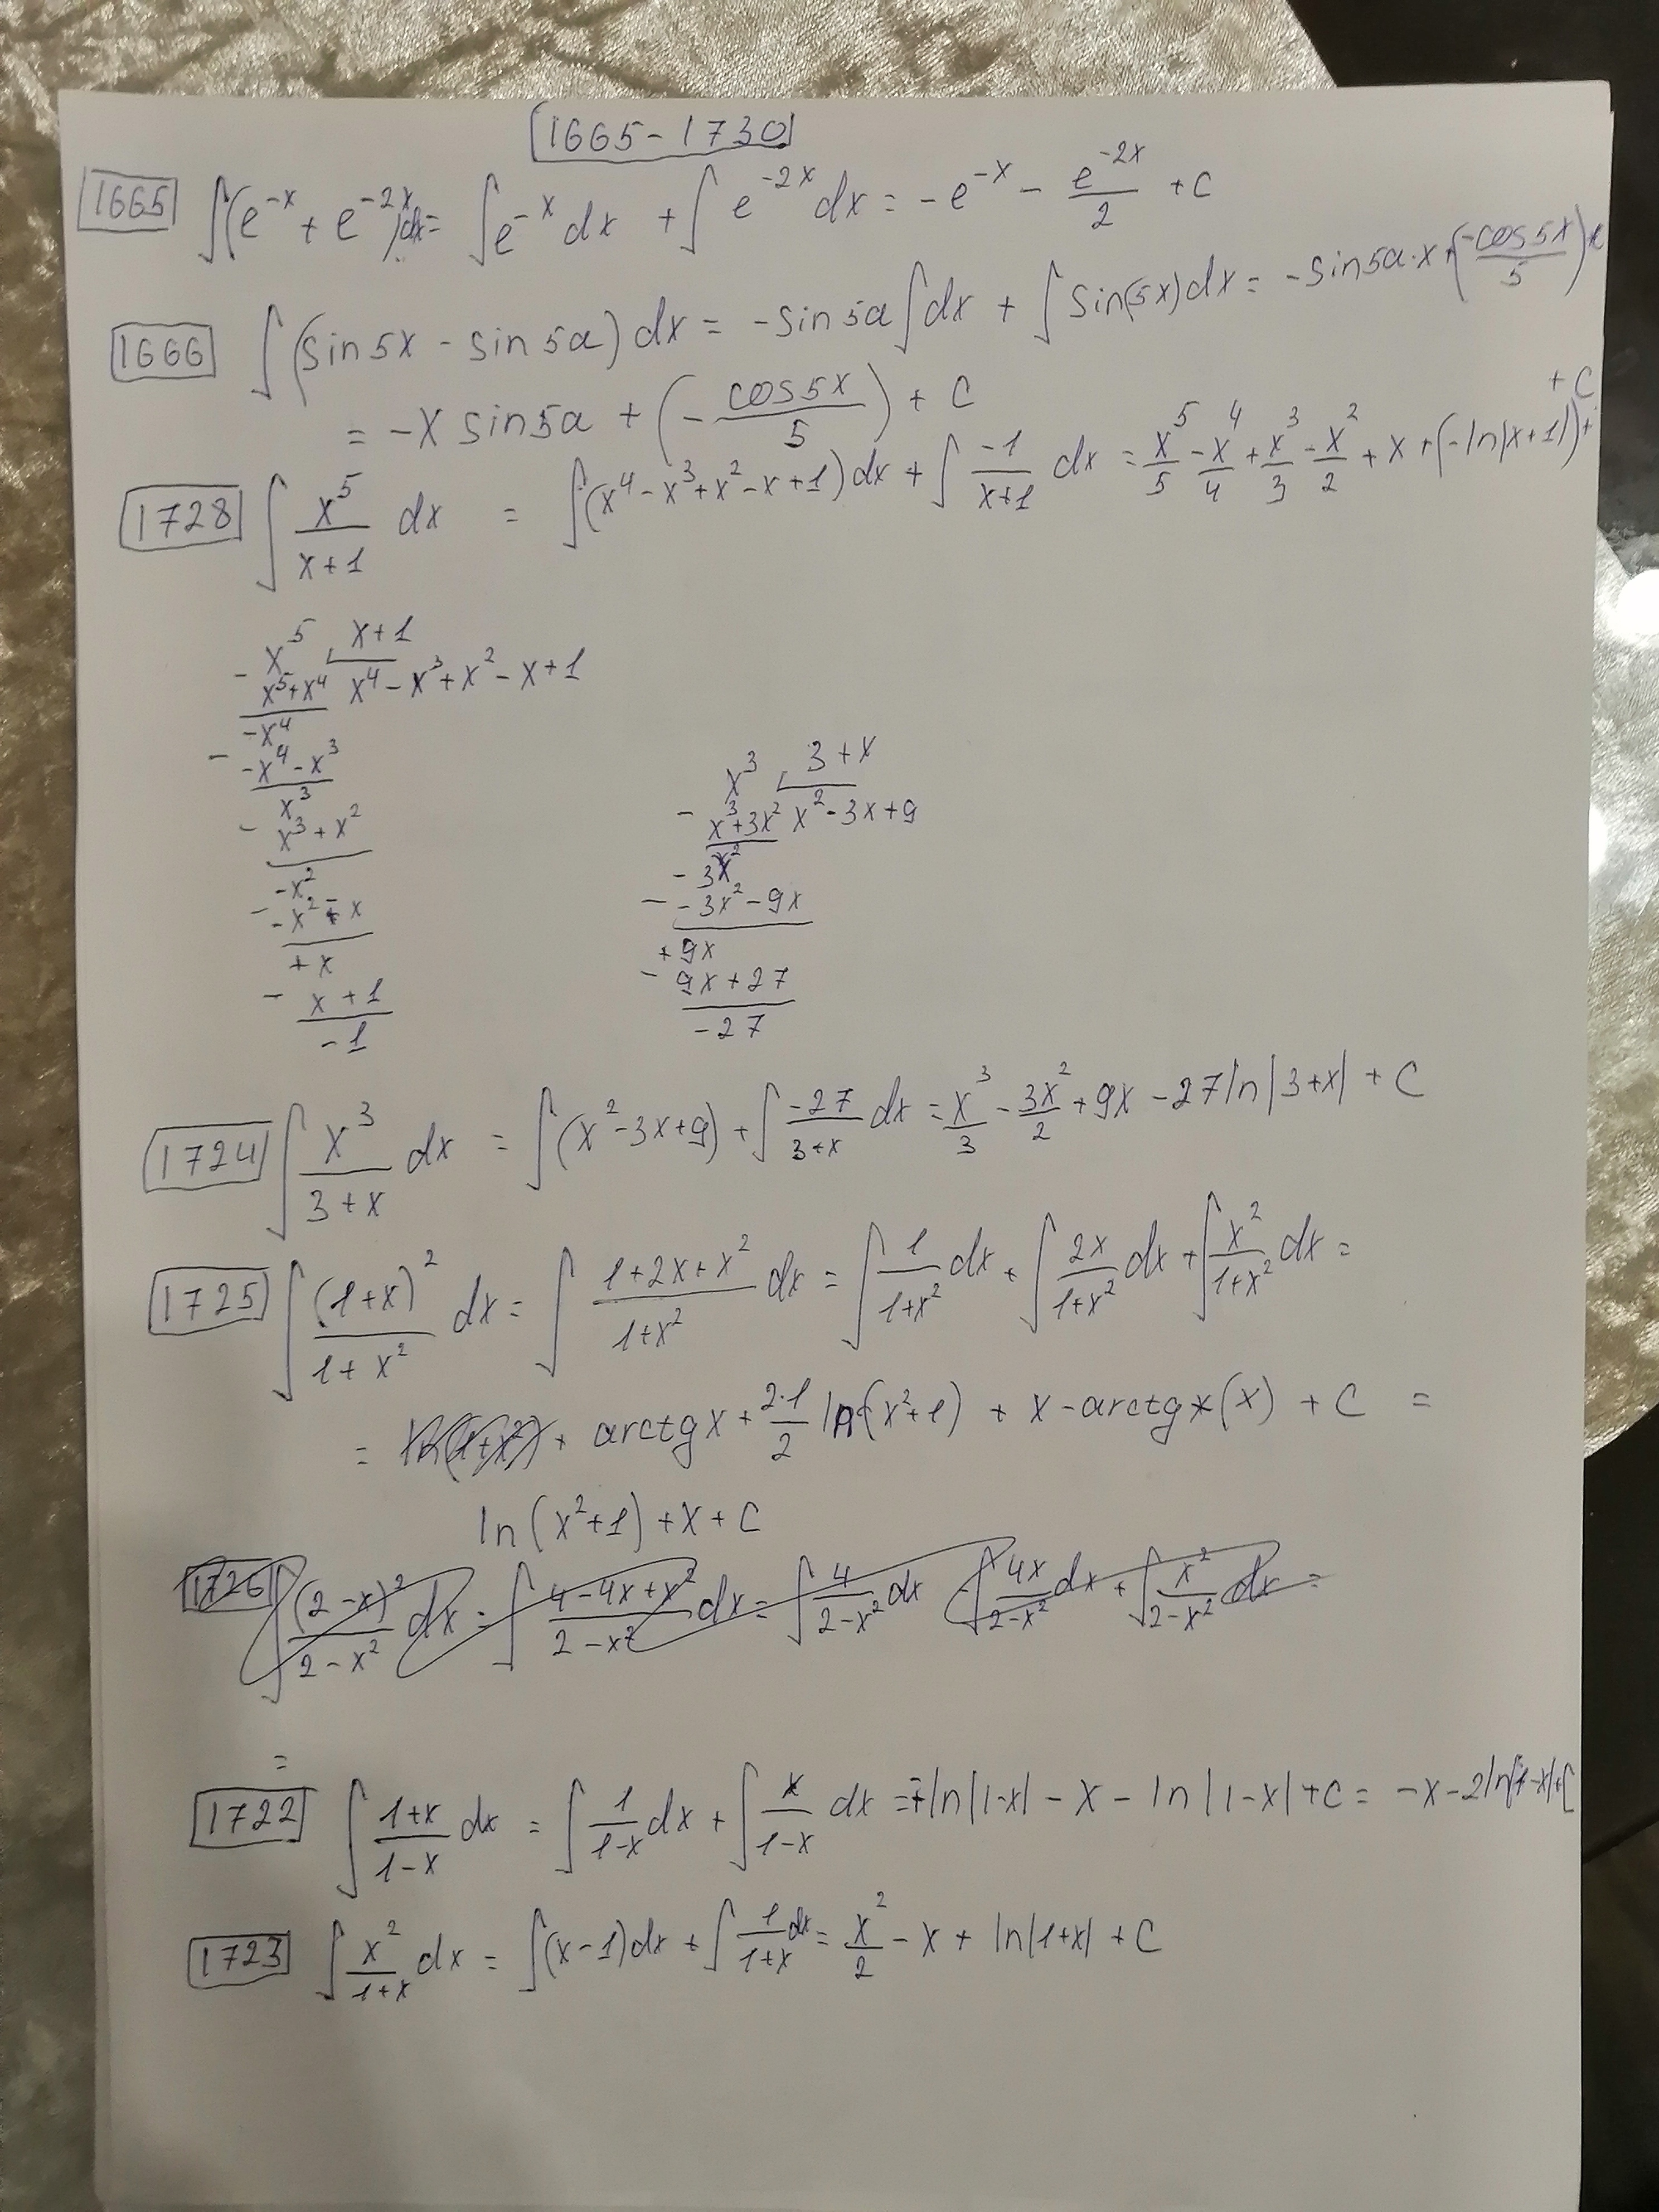 1665-1730
1665 ∫(e^-x + e^-2x)dx = ∫e^-x dx + ∫e^-2x dx = -e^-x - e^-2x/2 + C
1666 ∫(sin5x - sin5a)dx = -sin5a∫dx + ∫sin(5x)dx = -sin5a·x+(-cos5x/5)+
= -x sin5a + (-cos5x/5) + C
+ C
1728 ∫ x^5/(x+1) dx = ∫(x^4 - x^3 + x^2 - x + 1)dx + ∫ -1/(x+1) dx = x^5/5 - x^4/4 + x^3/3 - x^2/2 + x + (-ln|x+1|)+
- x^5 x+1
x^5+x^4 x^4 - x^3 + x^2 - x + 1
-x^4
- -x^4 - x^3
x^3
- x^3 + x^2
-x^2
- -x^2 - x
+x
- x+1
-1
x^3 3+x
- x^3+3x^2 x^2-3x+9
- 3x^2
- -3x^2 - 9x
+9x
- 9x+27
-27
1724 ∫ x^3/(3+x) dx = ∫(x^2-3x+9) + ∫ -27/(3+x) dx = x^3/3 - 3x^2/2 + 9x - 27ln|3+x| + C
1725 ∫ (1+x)^2/(1+x^2) dx = ∫ (1+2x+x^2)/(1+x^2) dx = ∫ 1/(1+x^2) dx + ∫ 2x/(1+x^2) dx + ∫ x^2/(1+x^2) dx =
= ln(1+x^2) + arctgx + 2·1/2 ln(x^2+1) + x - arctgx(x) + C =
ln(x^2+1) + x + C
1726 ∫ (2-x)^2/(2-x^2) dx = ∫ (4-4x+x^2)/(2-x^2) dx = ∫ 4/(2-x^2) dx ∫ 4x/(2-x^2) dx + ∫ x^2/(2-x^2) dx =
=
1722 ∫ (1+x)/(1-x) dx = ∫ 1/(1-x) dx + ∫ x/(1-x) dx = -ln|1-x| - x - ln|1-x| + C = -x-2ln|1-x|+C
1723 ∫ x^2/(1+x) dx = ∫(x-1)dx + ∫ 1/(1+x) dx = x^2/2 - x + ln|1+x| + C